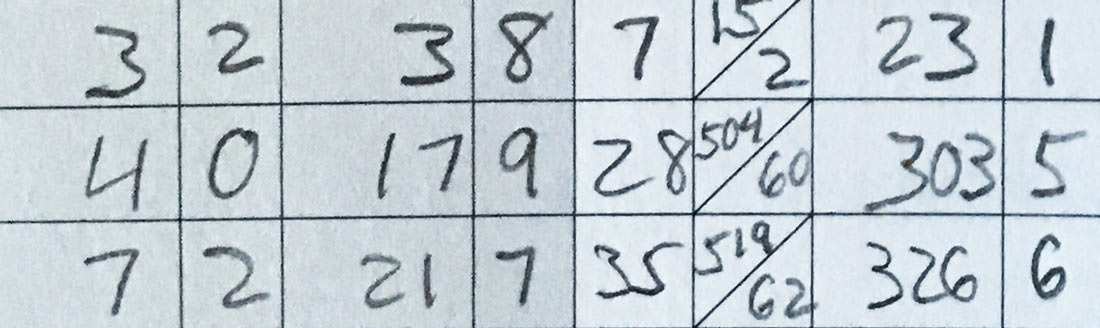 3 2 3 8 7 15/2 23 1
4 0 17 9 28 504/60 303 5
7 2 21 7 35 519/62 326 6